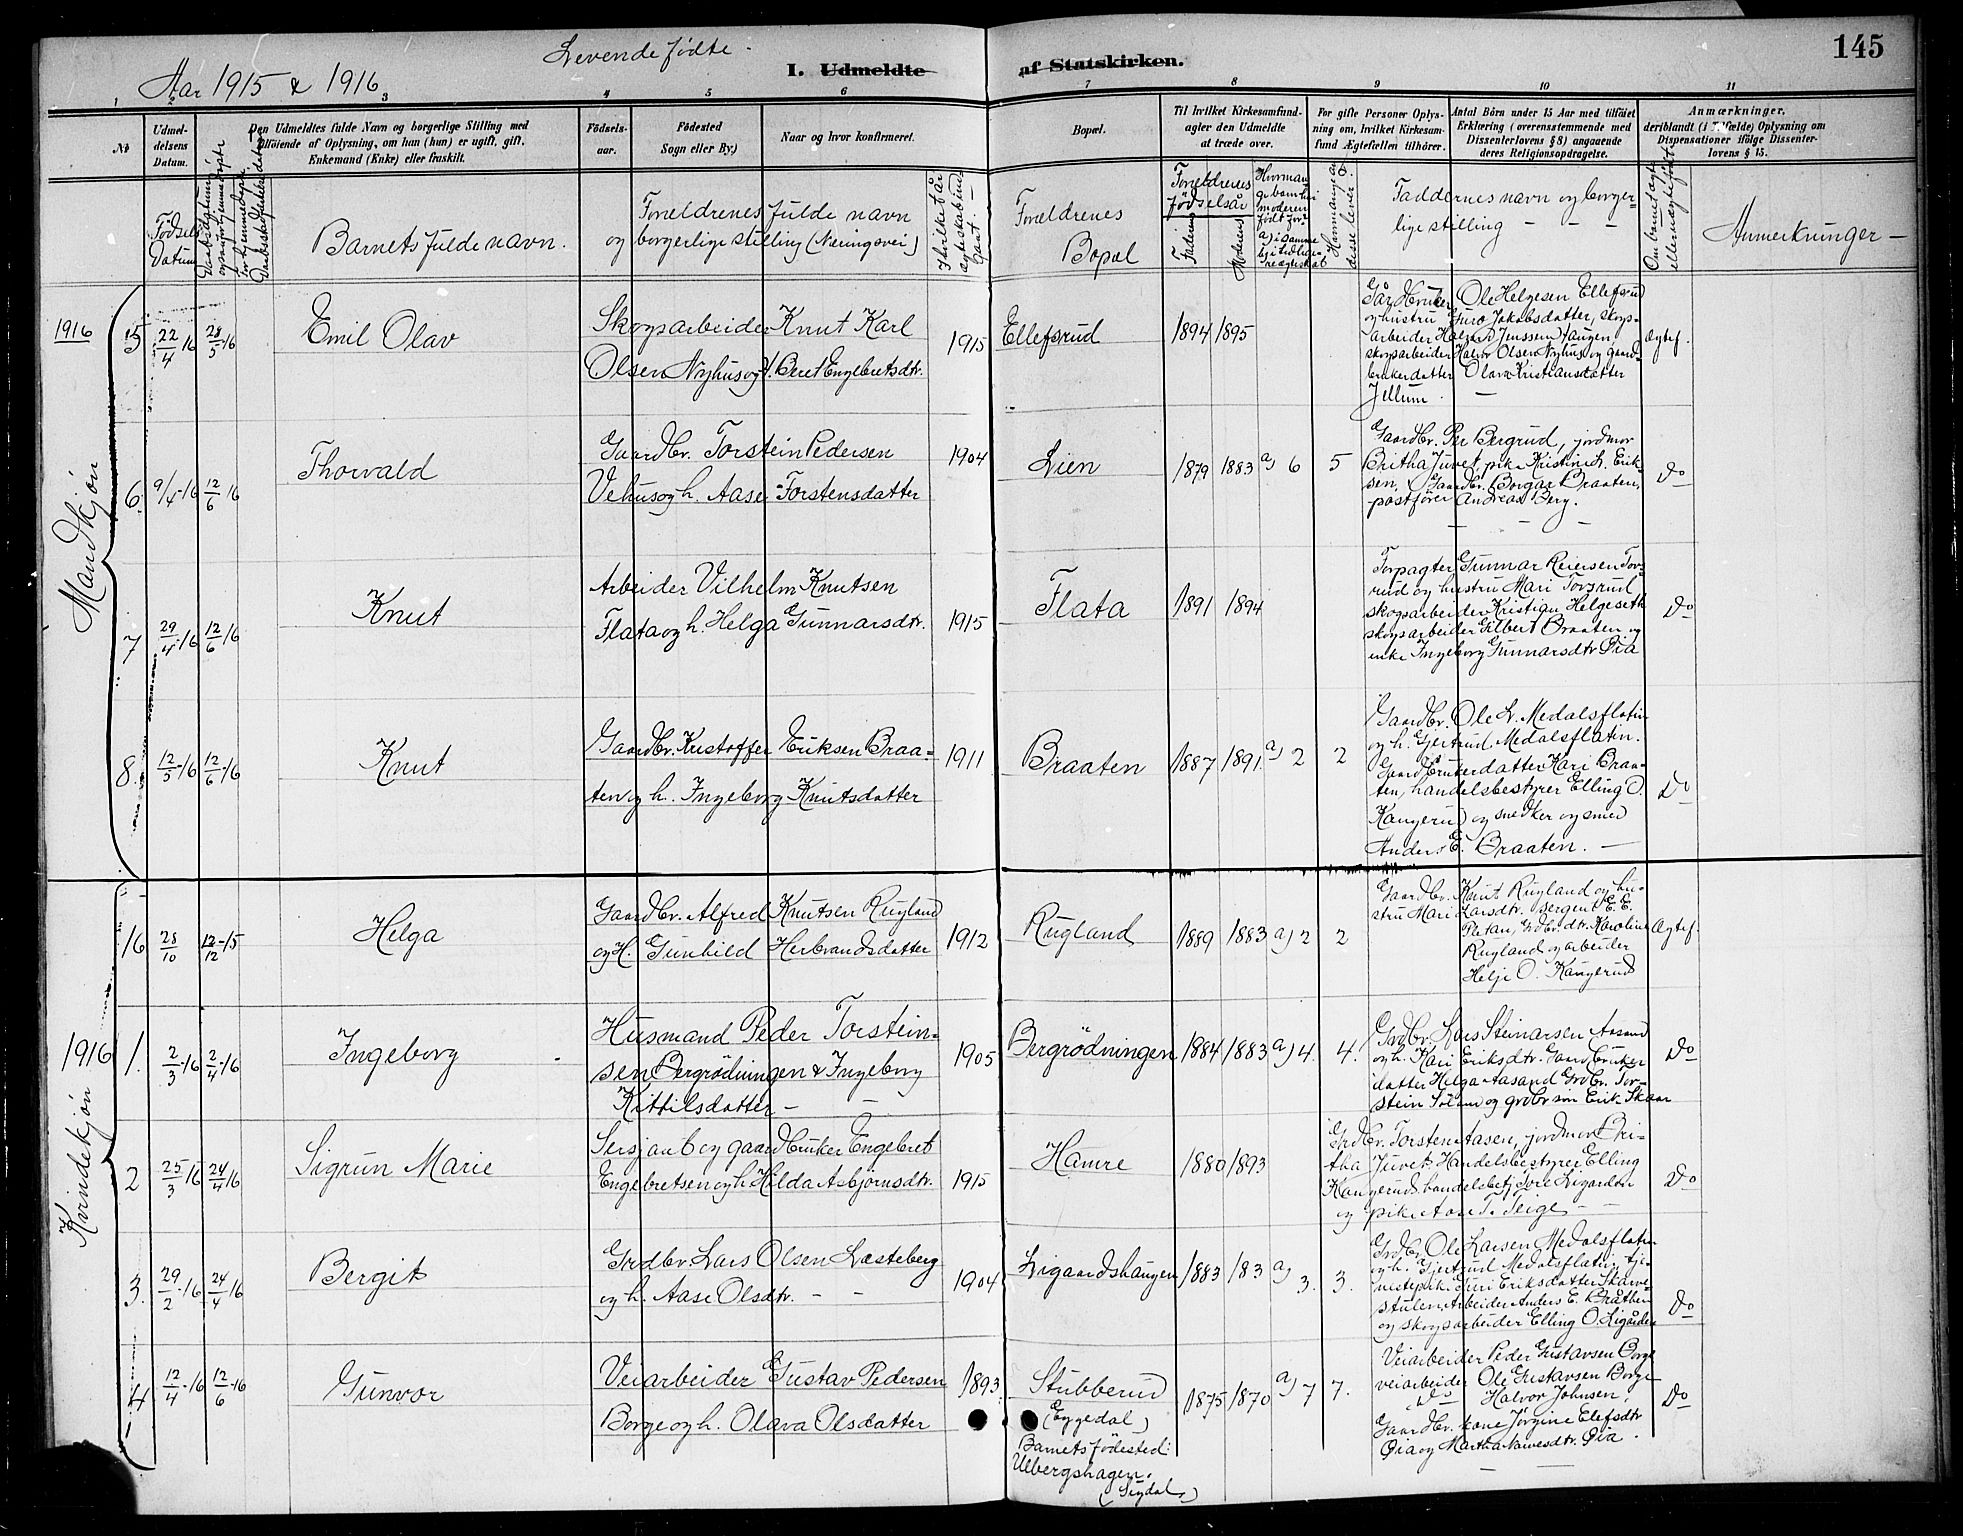 Levende fødte.
Aar 1915 & 1916
I. Udmeldte af Statskirken.
145
1 2 3 4 5 6 7 8 9 10 11
No
Udmel-
delsens
Datum.
Den Udmeldtes fulde Navn og borgerlige Stilling med
tilføiende af Oplysning, om han (hun) er ugift, gift,
Enkemand (Enke) eller fraskilt.
Fødsels-
aar.
Fødested
Sogn eller By.)
Naar og hvor konfirmeret.
Bopæl.
Til hvilket Kirkesamfund-
agter den Udmeldte
at træde over.
For gifte Personer Oplys-
ning om, hvilket Kirkesam-
fund Ægtefællen tilhører.
Antal Börn under 15 Aar med tilföiet
Erklæring (overensstemmende med
Dissenterlovens § 8) angaaende
deres Religionsopdragelse.
Anmærkninger,
deriblandt (i Tilfælde) Oplysning om
Dispensationer ifölge Dissenter-
lovens § 15.
Fødsels
Datum
Barnets fulde navn.
Forældrenes fulde navn
og borgerlige stilling (Næringsvei)
Forældrenes
Bopæl
Forældrenes
fødselsår
Faderens
Moderens
Faddernes navn og borger-
lige stilling - - -
Anmerkninger -
Mandkjön
1916
5 22/4-16 28/5-16
Emil Olav
Skogsarbeider Knut Karl
Olsen Nyhus og h. Berit Engebretsdtr.
1915
Ellefsrud
1894 1895
Gårdbruker Ole Helgesen Ellefsrud
og hustru Guro Jakobsdatter, skogs-
arbeider Halvard Jenssen Haugen,
skogsarbeider Halvor Olsen Nyhus og gaard-
brukerdatter Olava Kristiansdatter
Jellum. -
Ægtef.
6 9/4-16 12/6 16
Thorvald
Gaardbr. Torstein Pedersen
Vehus og h. Aase Torstensdatter
1904
Lien
1879 1883 a) 6 5
Gaardbr. Per Bergrud, jordmor
Britha Juvet, pike Kristine L. Erik-
sen, Gaardbr. Borgar Braaten,
postfører Andreas Berg.
Do
7 29/4-16 12/6-16
Knut
Arbeider Vilhelm Knutsen
Flata og h. Helga Gunnarsdtr.
1915
Flata
1891 1894
Forpagter Gunnar Reiersen Tors-
rud og hustru Mari Torsrud
skogsarbeider Kristian Helgeseth
skogsarbeider Gilbert Braaten og
enke Ingeborg Gunnarsdtr. Øia
Do
8. 12/5-16 12/6-16
Knut
Gaardbr. Kristoffer Eriksen Braa-
ten og h. Ingeborg Knutsdatter
1911
Braaten
1887 1891 a) 2 2
Gaardbr. Ole L. Medalsflatin
og h. Gjertrud Medalsflatin.
Gaardbrukerdatter Kari Braa-
ten, handelsbestyrer Elling O.
Kangerud og snedker og smed
Anders E. Braaten. -
Do
Kvindekjön
16 28/10 12/12-15
Helga
Gaardbr. Alfred Knutsen Rugland
og H. Gunhild Herbrandsdatter
1912
Rugland
1889 1883 a) 2 2
Gaardbr. Knut Rugland og hu-
stru Mari Larsdtr. sergent E. E.
Gdbr. dtr. Karoline
Rugland og arbeider
Helje O. Kangerud
Ægtef.
1916
1. 2/3-16 2/4-16
Ingeborg
Husmand Peder Torstein-
sen Bergrödningen & Ingeborg
Kittilsdatter - -
1905
Bergrödningen
1884 1883 a) 4. 4.
Grdbr. Lars Steinarsen Aasand
og h. Kari Eriksdtr. Gaardbruker
datter Helga Aasand Grdbr. Tor-
stein og grdbr søn Erik Skaar
Do
2 25/3-16 24/4 16
Sigrun Marie
Sersjant og gaardbruker Engebret
Engebretsen og h. Hilda Asbjörnsdtr.
1915
Hamre
1880 1893
Grdbr. Torsten Aasen, jordmor Bri-
tha Juvet, Handelsbestyrer Elling
Kangerud, handelsbetj. Tore Ligarden
og pike Aase T. Teige - -
Do
3. 29/2-16 24/4 16
Bergit
Grdbr. Lars Olsen Læsteberg
og h. Aase Olsdtr. - -
1904
Ligaardshaugen
1883 183 a) 3. 3.
Grdbr Ole Larsen Medalsflatin
og h. Gjertrud Medalsflatin, tje-
nestepike Guri Eriksdatter Skarve-
stulen, Arbeider Anders E. Bråthen
og skogsarbeider Elling O. Ligården
Do
4 12/4-16 12/6-16
Gunvor
Veiarbeider Gustav Pedersen
Borge og h. Olava Olsdatter
1893
Stubberud
(Eggedal)
Barnets födested:
Ulbergshagen.
(Sigdal)
1875 1870 a) 7 7.
Veiarbeider Peder Gustavsen Borge
veiarbeider Ole Gustavsen Borge
Do Halvor Johnsen,
Gaardbr. kone Jörgine Elefsdtr
Øia og Martha Narvesdtr. Øia.
Do